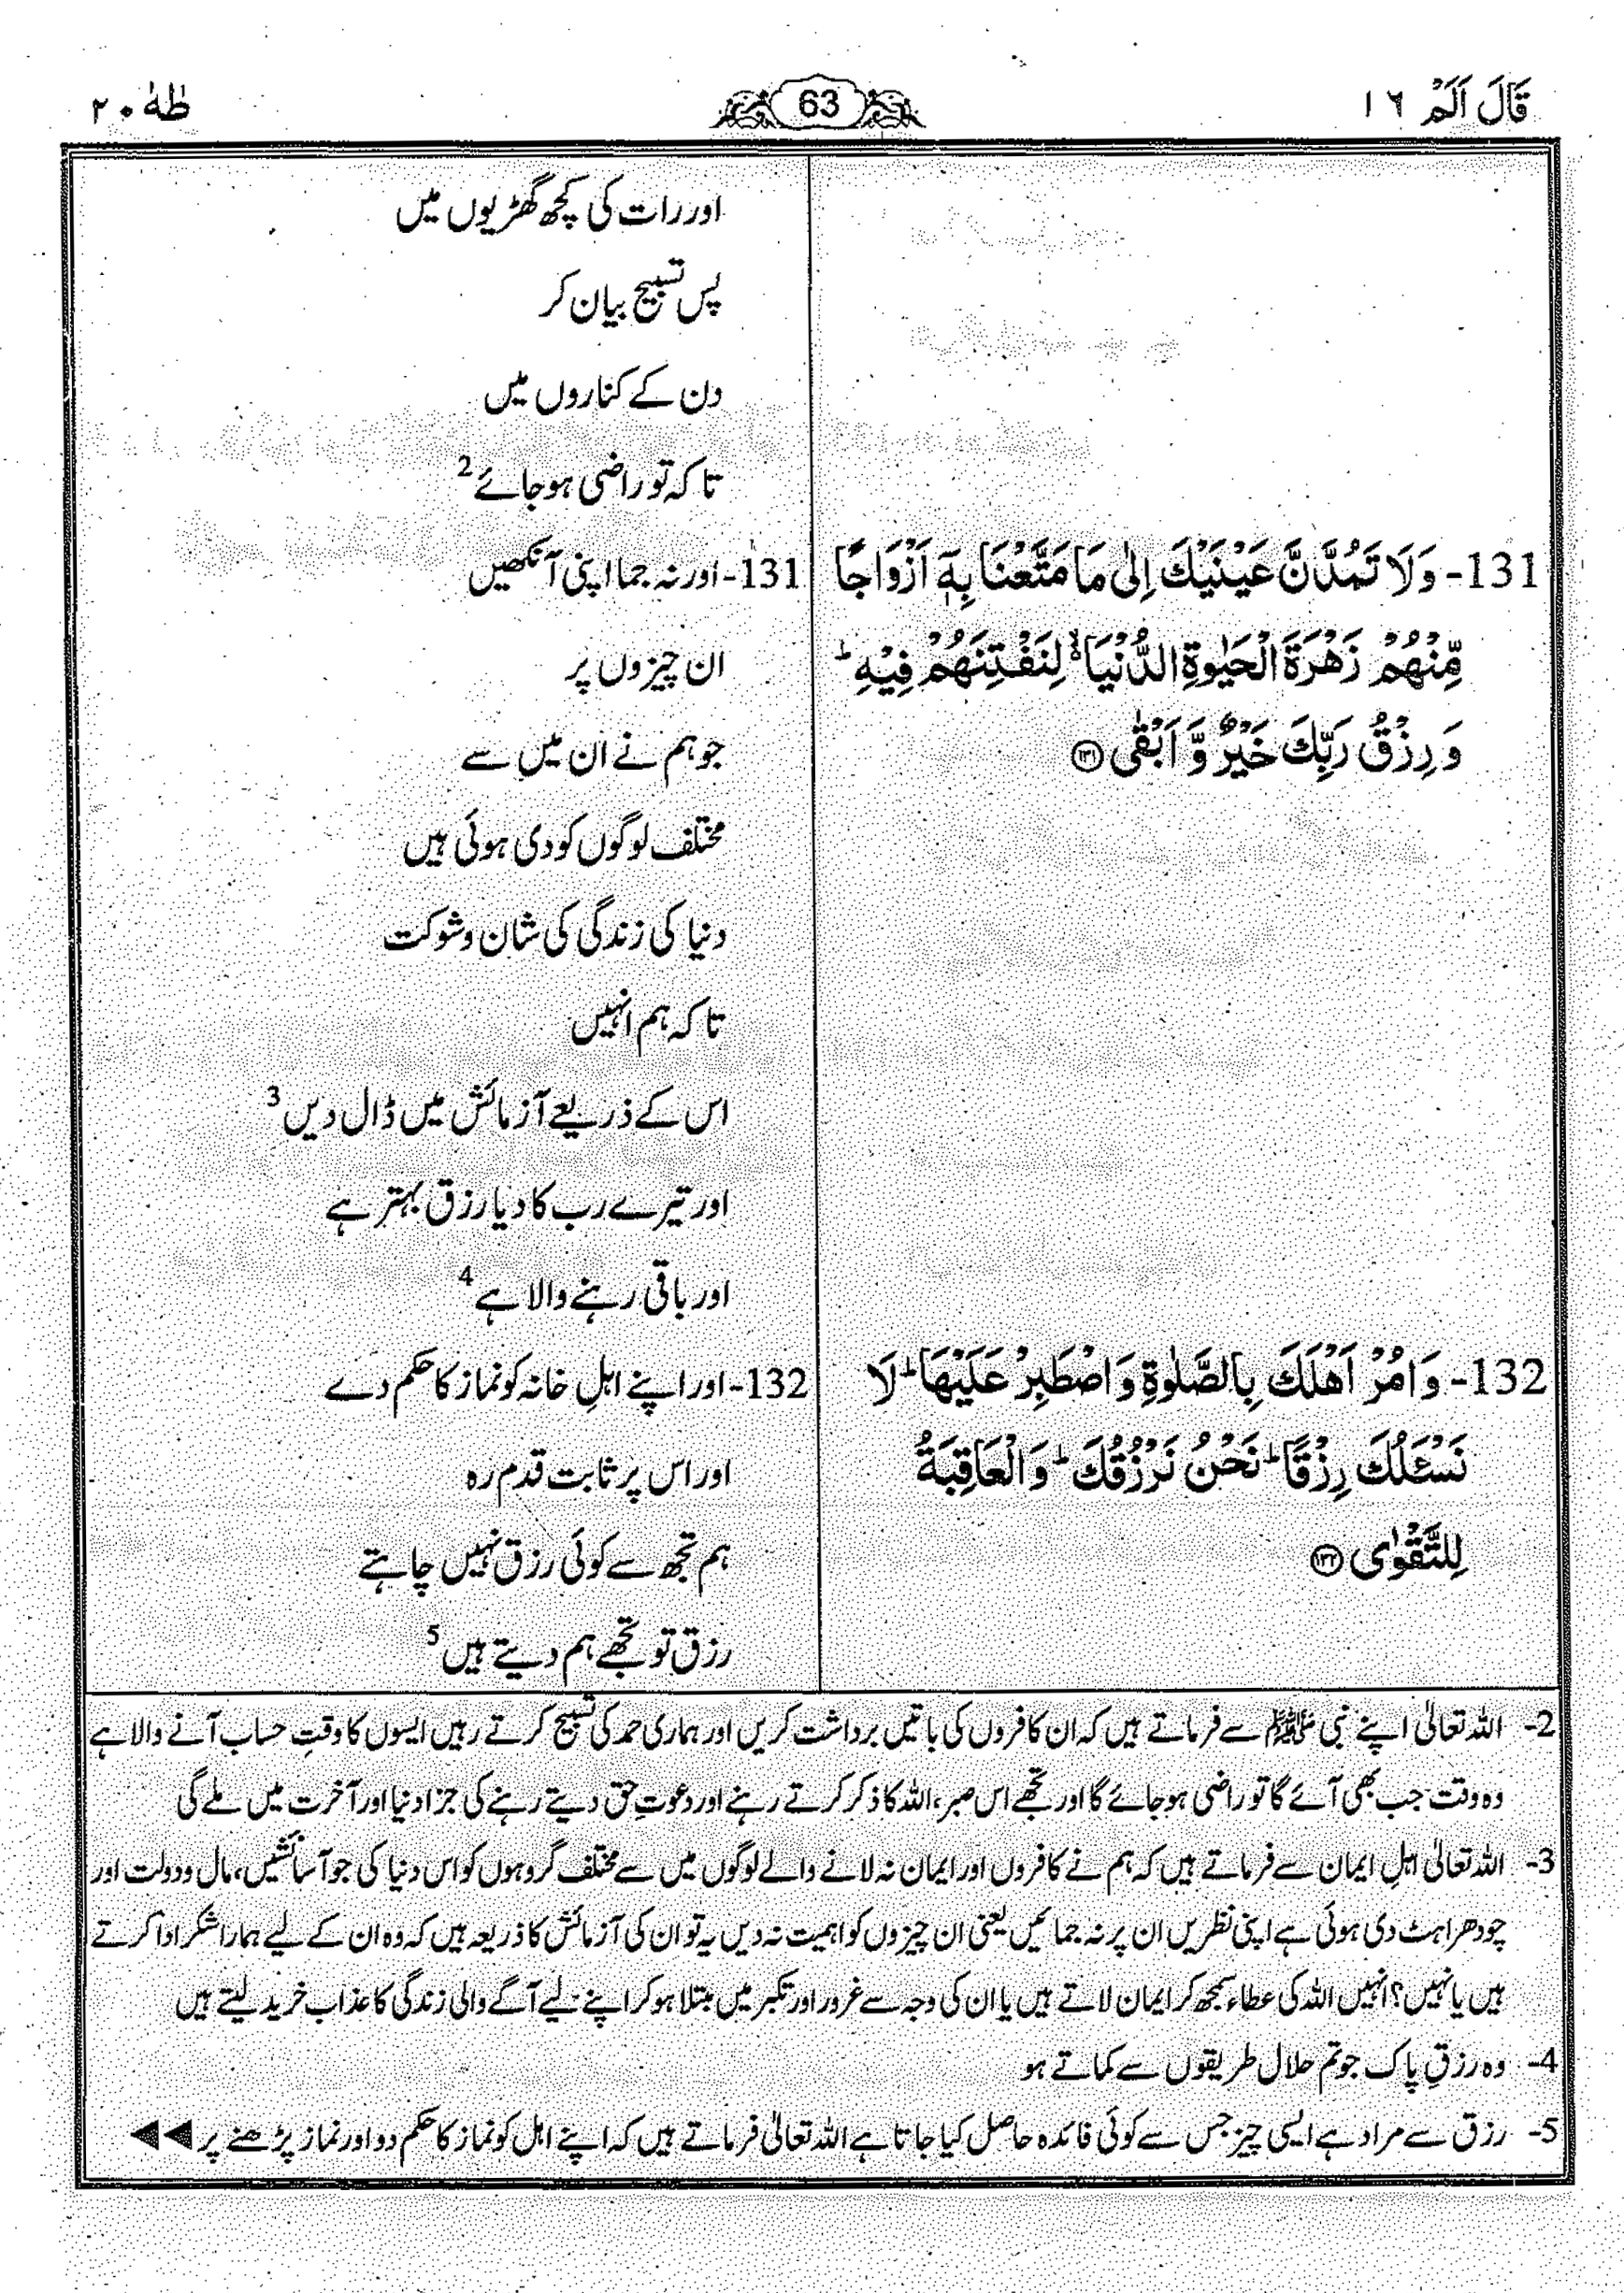 قَالَ اَلَمْ ١٦
63
طٰهٰ ٢٠
اور رات کی کچھ گھڑیوں میں
پس تسبیح بیان کر
دن کے کناروں میں
تاکہ تو راضی ہو جائے 2
131- وَلَا تَمُدَّنَّ عَيْنَيْكَ اِلٰى مَا مَتَّعْنَا بِهٖٓ اَزْوَاجًا
مِّنْهُمْ زَهْرَةَ الْحَيٰوةِ الدُّنْيَا ۙ لِنَفْتِنَهُمْ فِيْهِ ؕ
وَ رِزْقُ رَبِّكَ خَيْرٌ وَّ اَبْقٰى ﴿١٣١﴾
131- اور نہ جما اپنی آنکھیں
ان چیزوں پر
جو ہم نے ان میں سے
مختلف لوگوں کو دی ہوئی ہیں
دنیا کی زندگی کی شان و شوکت
تاکہ ہم انہیں
اس کے ذریعے آزمائش میں ڈال دیں 3
اور تیرے رب کا دیا رزق بہتر ہے
اور باقی رہنے والا ہے 4
132- وَاْمُرْ اَهْلَكَ بِالصَّلٰوةِ وَ اصْطَبِرْ عَلَيْهَا ؕ لَا
نَسْـَٔلُكَ رِزْقًا ؕ نَحْنُ نَرْزُقُكَ ؕ وَ الْعَاقِبَةُ
لِلتَّقْوٰى ﴿١٣٢﴾
132- اور اپنے اہلِ خانہ کو نماز کا حکم دے
اور اس پر ثابت قدم رہ
ہم تجھ سے کوئی رزق نہیں چاہتے
رزق تو تجھے ہم دیتے ہیں 5
2- اللہ تعالیٰ اپنے نبی ﷺ سے فرماتے ہیں کہ ان کافروں کی باتیں برداشت کریں اور ہماری حمد کی تسبیح کرتے رہیں ایسوں کا وقتِ حساب آنے والا ہے
وہ وقت جب بھی آئے گا تو راضی ہو جائے گا اور تجھے اس صبر، اللہ کا ذکر کرتے رہنے اور دعوتِ حق دیتے رہنے کی جزا دنیا اور آخرت میں ملے گی
3- اللہ تعالیٰ اہلِ ایمان سے فرماتے ہیں کہ ہم نے کافروں اور ایمان نہ لانے والے لوگوں میں سے مختلف گروہوں کو اس دنیا کی جو آسائشیں، مال و دولت اور
چودھراہٹ دی ہوئی ہے اپنی نظریں ان پر نہ جمائیں یعنی ان چیزوں کو اہمیت نہ دیں یہ تو ان کی آزمائش کا ذریعہ ہیں کہ وہ ان کے لیے ہمارا شکر ادا کرتے
ہیں یا نہیں؟ انہیں اللہ کی عطاء سمجھ کر ایمان لاتے ہیں یا ان کی وجہ سے غرور اور تکبر میں مبتلا ہو کر اپنے لیے آگے والی زندگی کا عذاب خرید لیتے ہیں
4- وہ رزقِ پاک جو تم حلال طریقوں سے کماتے ہو
5- رزق سے مراد ہے ایسی چیز جس سے کوئی فائدہ حاصل کیا جاتا ہے اللہ تعالیٰ فرماتے ہیں کہ اپنے اہل کو نماز کا حکم دو اور نماز پڑھنے پر ◄◄